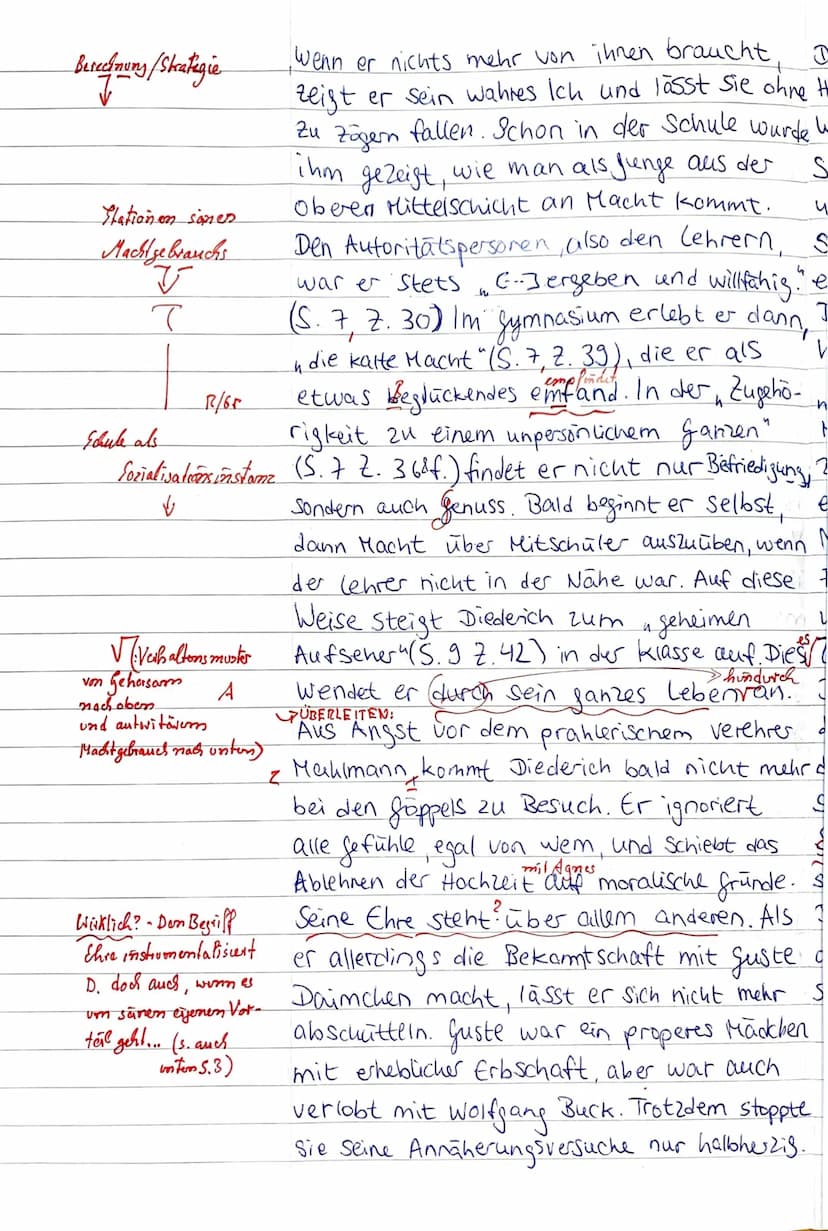 Berechnung/Strategie
wenn er nichts mehr von ihnen braucht,
zeigt er sein wahres Ich und lässt sie ohne
zu zögern fallen. Schon in der Schule wurde
ihm gezeigt, wie man als Junge aus der
Stationen seines
oberen Mittelschicht an Macht kommt.
Machtgebrauchs
Den Autoritätspersonen, also den Lehrern,
war er stets „[...] ergeben und willfähig."
(S. 7, Z. 30) Im Gymnasium erlebt er dann,
„die kalte Macht" (S. 7, Z. 39), die er als
empfindet
R/Gr
etwas Beglückendes empfand. In der „Zugehö-
Schule als
rigkeit zu einem unpersönlichem Ganzen"
Sozialisationsinstanz
(S. 7 Z. 36ff.) findet er nicht nur Befriedigung,
sondern auch Genuss. Bald beginnt er selbst,
dann Macht über Mitschüler auszuüben, wenn
der Lehrer nicht in der Nähe war. Auf diese
Weise steigt Diederich zum „geheimen
es
√ (: Verhaltensmuster
Aufseher" (S. 9 Z. 42) in der Klasse auf. Dies
hindurch
von Gehorsam
A
wendet er durch sein ganzes Leben an.
nach oben
ÜBERLEITEN:
und autoritärem
Aus Angst vor dem prahlerischem verehres
Machtgebrauch nach unten)
Z
Mahlmann, kommt Diederich bald nicht mehr
bei den Göppels zu Besuch. Er ignoriert
alle Gefühle, egal von wem, und schiebt das
mit Agnes
Ablehnen der Hochzeit auf moralische Gründe.
Wirklich? - Den Begriff
?
Seine Ehre steht über allem anderen. Als
Ehre instrumentalisiert
er allerdings die Bekanntschaft mit Guste
D. doch auch, wenn es
Daimchen macht, lässt er sich nicht mehr
um seinen eigenen Vor-
abschütteln. Guste war ein properes Mädchen
teil geht... (s. auch
unten S.3)
mit erheblicher Erbschaft, aber war auch
verlobt mit Wolfgang Buck. Trotzdem stoppte
sie seine Annäherungsversuche nur halbherzig.